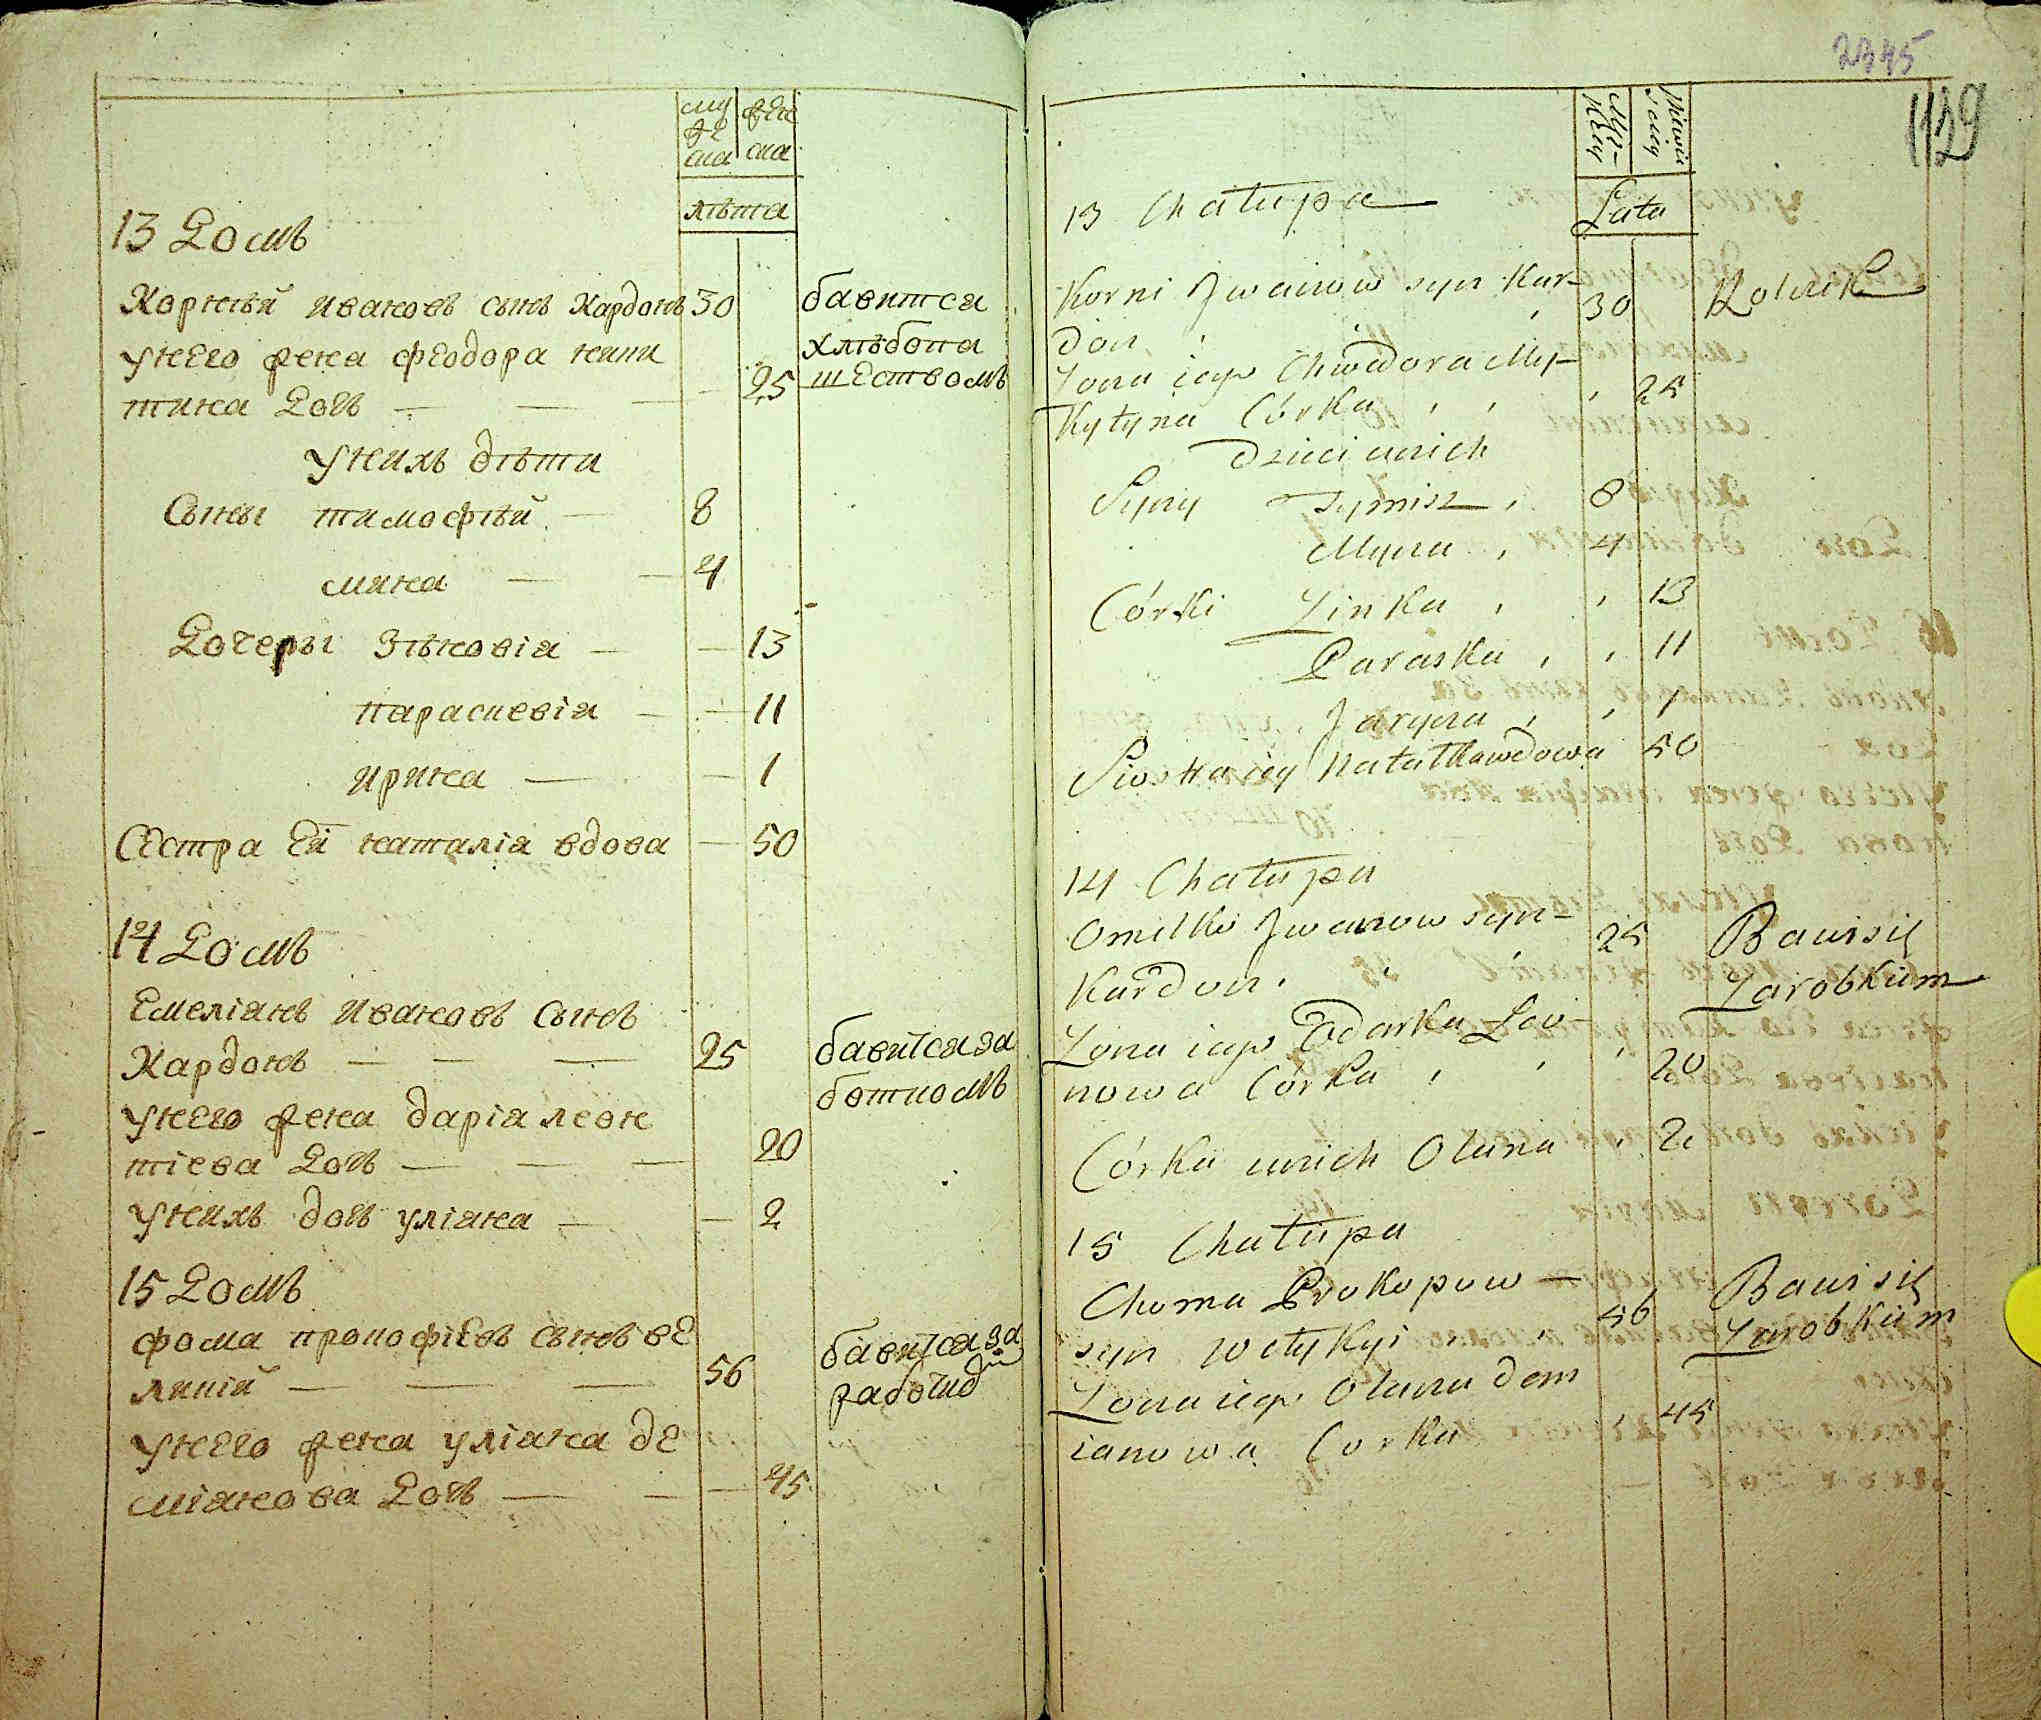 му
же
ска
жен
ска
лѣта
13 Домъ
Корнѣй Ивановъ сынъ Кардонъ 30 бавится
Унего жена Феодора Ники хлѣбопа
тина дочь — — — 25 шествомъ
Унихъ дѣти
Сыны Тимофѣй — 8
Мина — — 4
Дочеры Зѣновія — — 13
Параскевія — — 11
Ирина — — 1
Сестра ея Наталія вдова — 50
14 Домъ
Емеліянъ Ивановъ сынъ
Кардонъ — — — 25 бавится за
Унего жена Дарія Леон боткомъ
тіева дочь — — — 20
Унихъ дочь Уліяна — — 2
15 Домъ
Фома Прокофіевъ сынъ Ве бавится за
ликій — — — 56
Унего жена Уліяна Де
міянова дочь — — — 45
2345
1129
Męz-
key
Lata
13 Chałupa
Korni Iwanow syn Kar- 30 Rolnik
don
Zona iego Chwedora My-
kytyna Córka 25
Dzieci unich
Syny Tymisz 8
Myna 4
Córki Zinka 13
Paraska 11
Jaryna 1
Siostra iey Natałka wdowa 50
14 Chałupa
Omelko Iwanow syn- 25 Bawi się
Kardon Zarobkiem
Zona iego Odarka Lew-
nowa Córka 20
Córka unich Olana 2
15 Chałupa
Choma Prokopow — Bawi się
syn Wełykyi 56 Zarobkiem
Zona iego Olana Dem
ianowa Corka 45